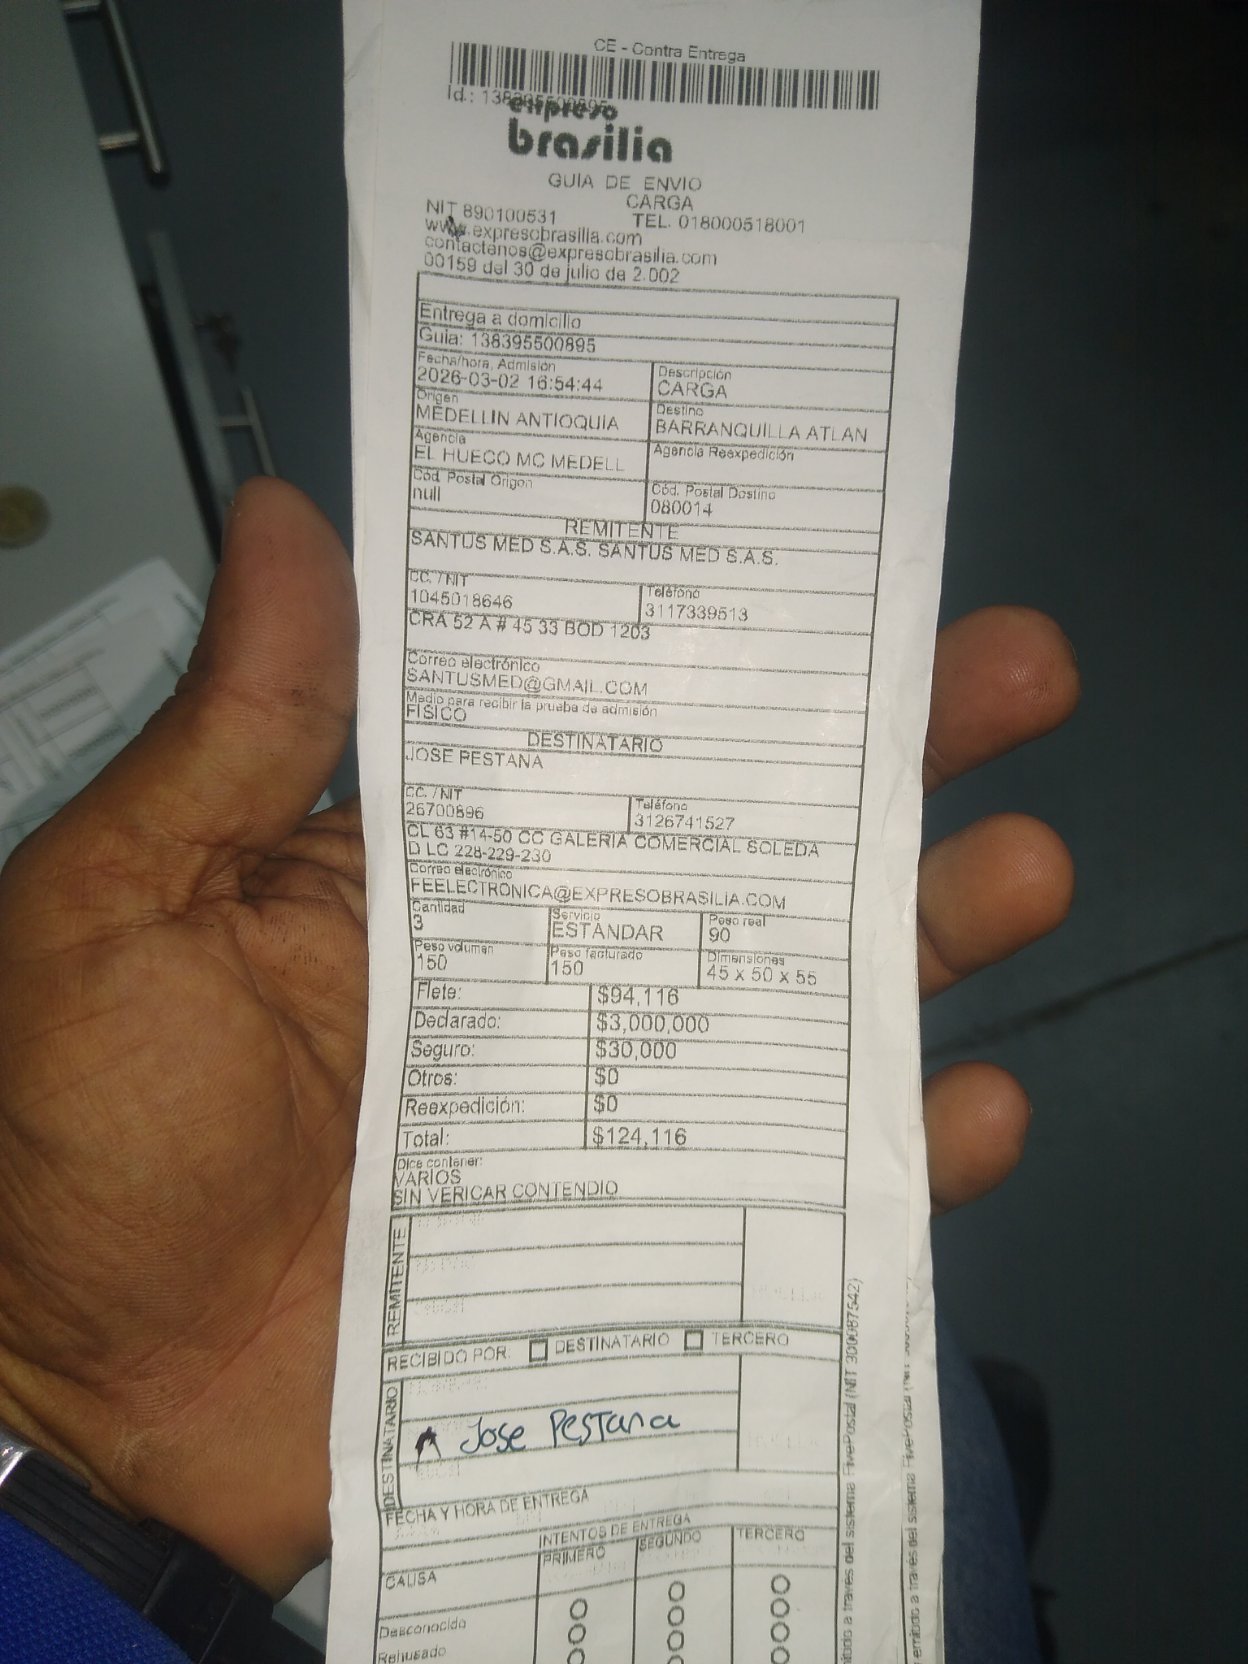 CE - Contra Entrega
Id.: 138395500895
expreso
brasilia
GUIA DE ENVIO
CARGA
NIT 890100531 TEL. 018000518001
www.expresobrasilia.com
contactenos@expresobrasilia.com
00159 del 30 de julio de 2.002
Entrega a domicilio
Guia: 138395500895
Fecha/hora, Admisión Descripción
2026-03-02 16:54:44 CARGA
Origen Destino
MEDELLIN ANTIOQUIA BARRANQUILLA ATLAN
Agencia Agencia Reexpedición
EL HUECO MC MEDELL
Cód. Postal Origen Cód. Postal Destino
null 080014
REMITENTE
SANTUS MED S.A.S. SANTUS MED S.A.S.
CC. / NIT Teléfono
1045018646 3117339513
CRA 52 A # 45 33 BOD 1203
Correo electrónico
SANTUSMED@GMAIL.COM
Medio para recibir la prueba de admisión
FISICO
DESTINATARIO
JOSE PESTANA
CC. / NIT Teléfono
26700896 3126741527
CL 63 #14-50 CC GALERIA COMERCIAL SOLEDA
D LC 228-229-230
Correo electrónico
FEELECTRONICA@EXPRESOBRASILIA.COM
Cantidad Servicio Peso real
3 ESTANDAR 90
Peso volumen Peso facturado Dimensiones
150 150 45 x 50 x 55
Flete: $94,116
Declarado: $3,000,000
Seguro: $30,000
Otros: $0
Reexpedición: $0
Total: $124,116
Dice contener:
VARIOS
SIN VERICAR CONTENDIO
REMITENTE
RECIBIDO POR: DESTINATARIO TERCERO
DESTINATARIO
Jose Pestana
FECHA Y HORA DE ENTREGA
INTENTOS DE ENTREGA
CAUSA PRIMERO SEGUNDO TERCERO
Desconocido
Rehusado
emitido a traves del sistema FivePostal (NIT 900087542)
emitido a traves del sistema FivePostal